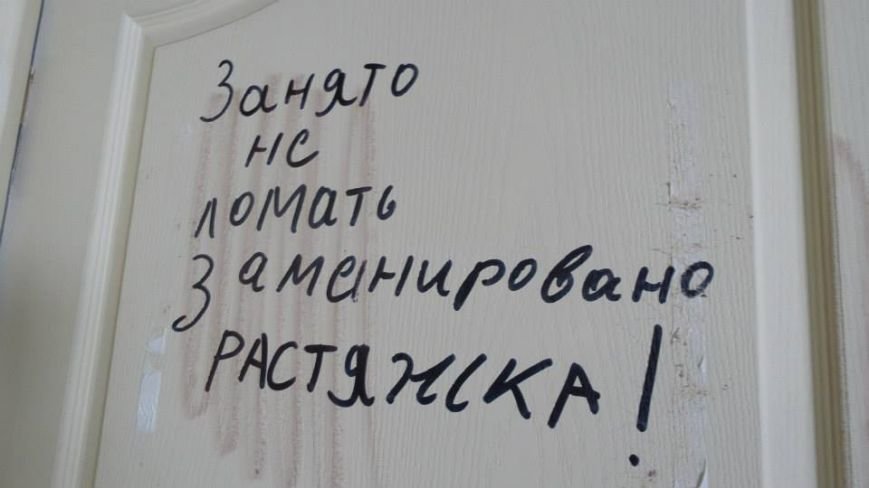 Занято
не
ломать
Заменировано
РАСТЯЖКА!